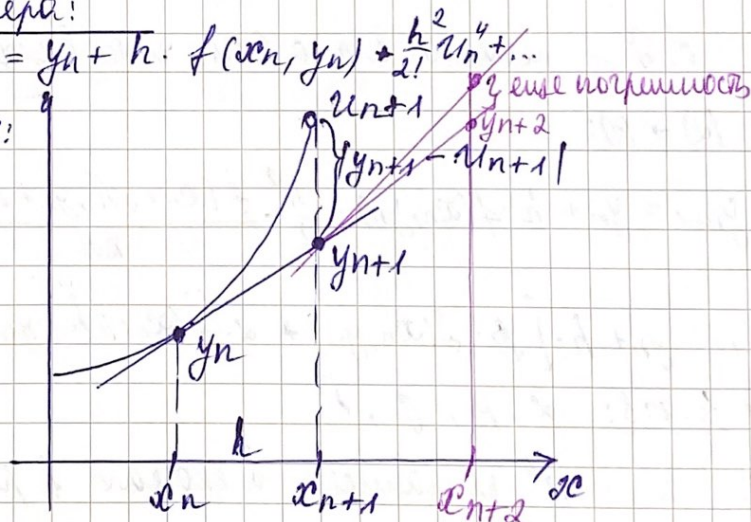 ера!
= yn + h · f(xn, yn) + h²/2! un'' + ...
y
un+1
} еще погрешность
yn+2
|yn+1 − un+1|
yn+1
yn
h
xn xn+1 xn+2 x